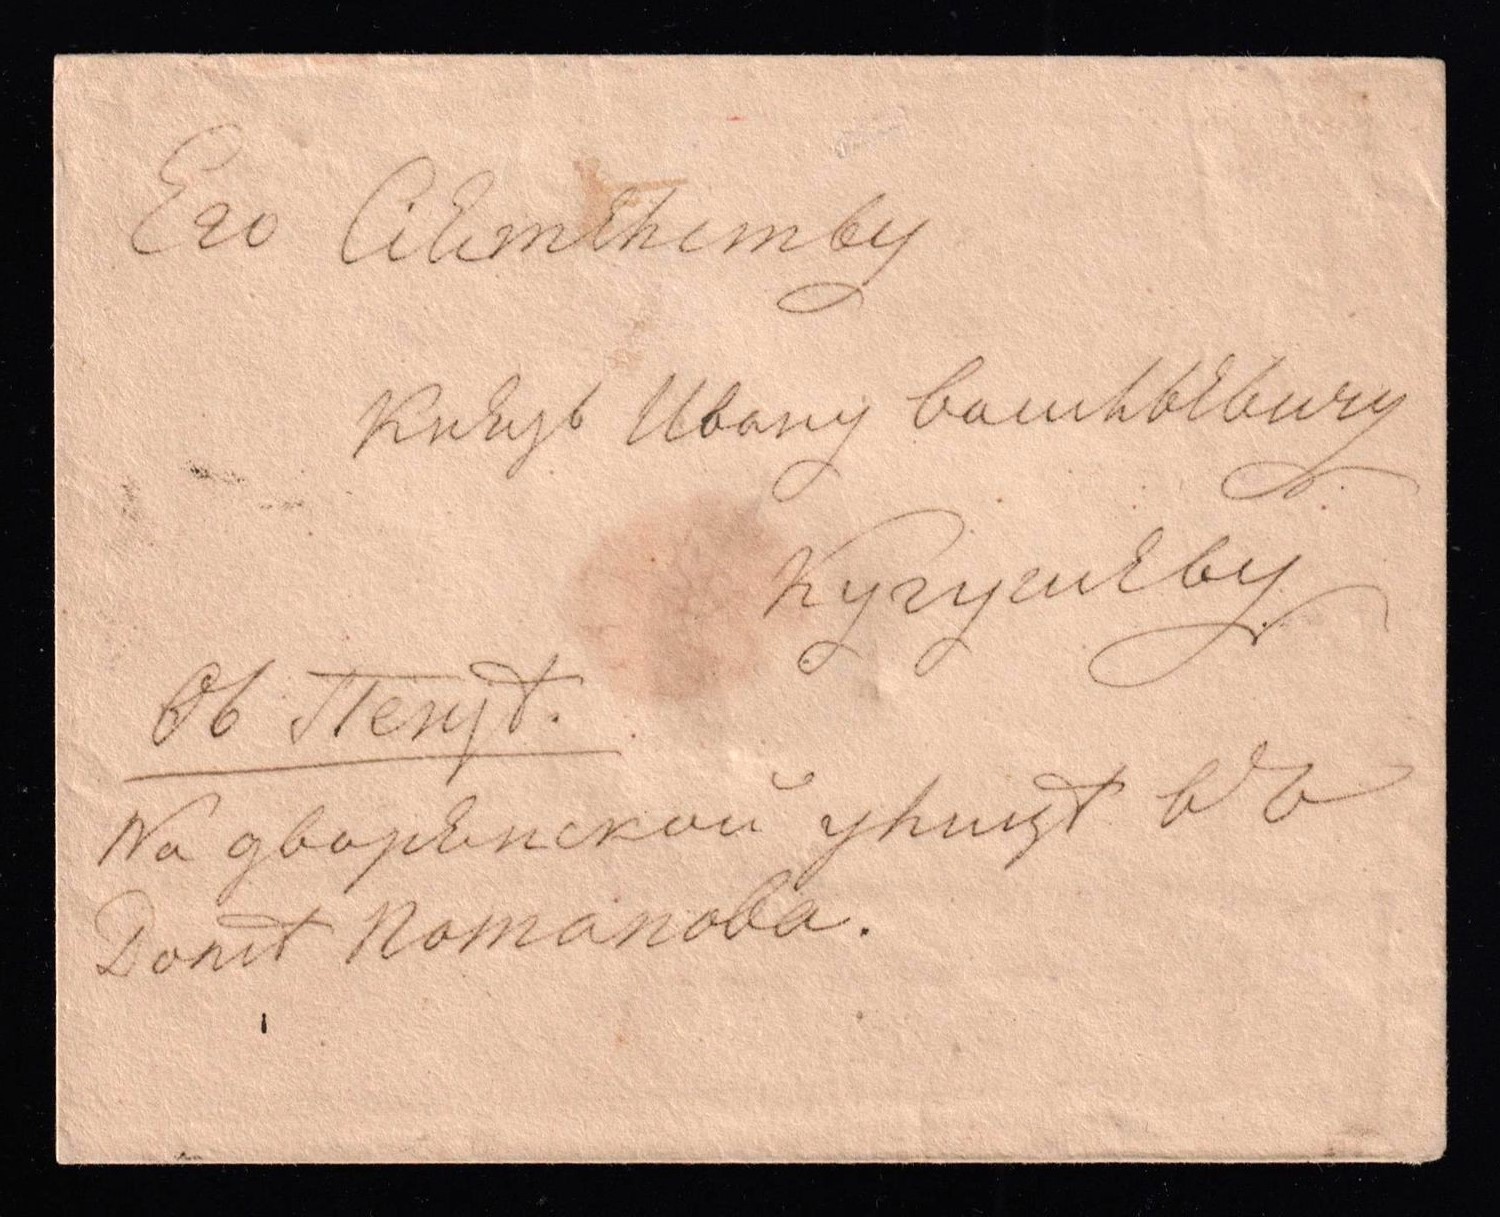 Его Сіетенству
Князь Ивану васильевичу
Кугушеву
Въ Пензѣ.
На дворенской улицѣ въ
Домѣ Потапова.